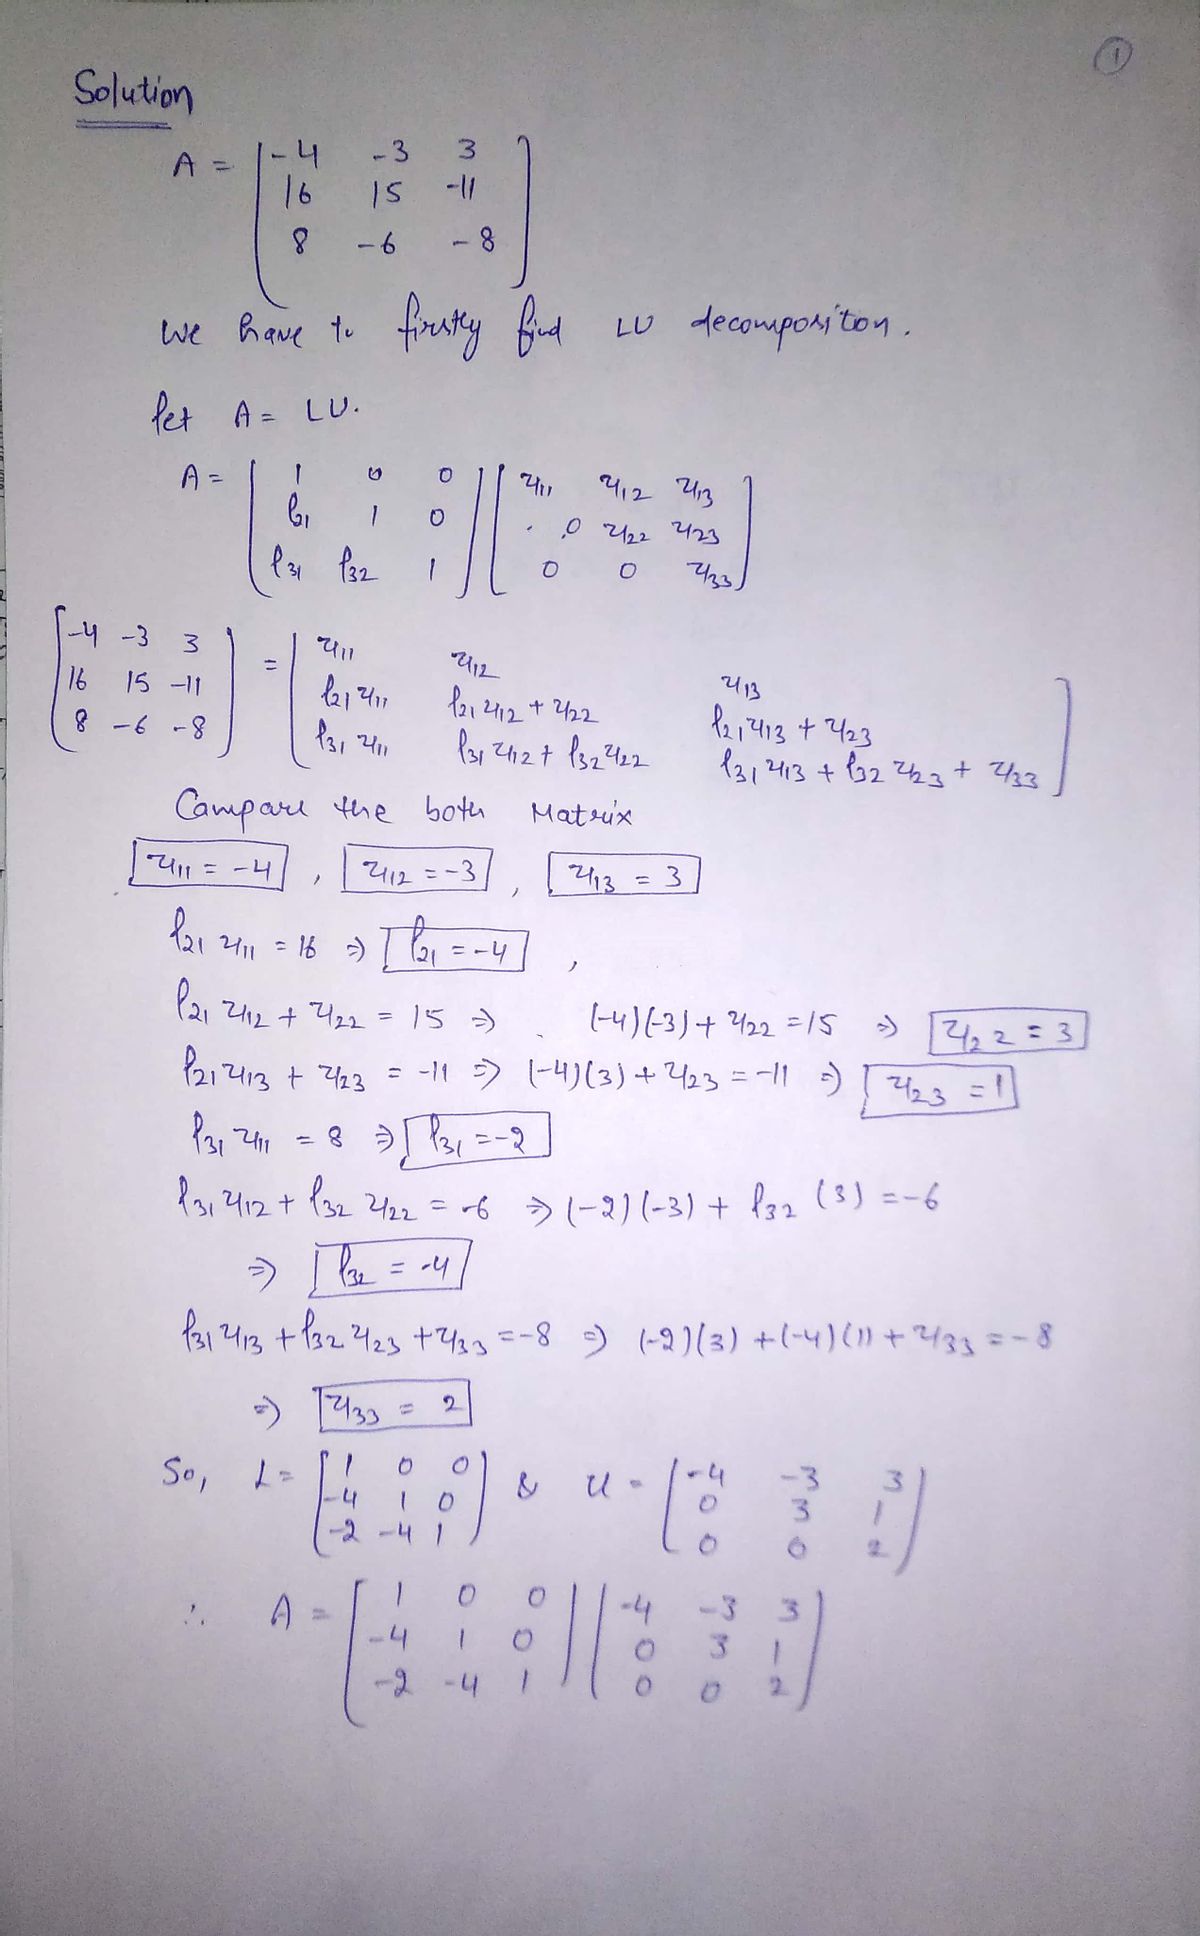 1
Solution
A = [ -4 -3 3
16 15 -11
8 -6 -8 ]
We have to firstly find LU decomposition.
let A = LU.
A = [ 1 0 0 ] [ u11 u12 u13 ]
l21 1 0 0 u22 u23
l31 l32 1 0 0 u33
[ -4 -3 3 ] = [ u11 u12 u13 ]
16 15 -11 l21 u11 l21 u12 + u22 l21 u13 + u23
8 -6 -8 l31 u11 l31 u12 + l32 u22 l31 u13 + l32 u23 + u33
Compare the both Matrix
u11 = -4 , u12 = -3 , u13 = 3
l21 u11 = 16 ⇒ l21 = -4 ,
l21 u12 + u22 = 15 ⇒ (-4)(-3) + u22 = 15 ⇒ u22 = 3
l21 u13 + u23 = -11 ⇒ (-4)(3) + u23 = -11 ⇒ u23 = 1
l31 u11 = 8 ⇒ l31 = -2
l31 u12 + l32 u22 = -6 ⇒ (-2)(-3) + l32 (3) = -6
⇒ l32 = -4
l31 u13 + l32 u23 + u33 = -8 ⇒ (-2)(3) + (-4)(1) + u33 = -8
⇒ u33 = 2
So, L = [ 1 0 0 ] & U = [ -4 -3 3 ]
-4 1 0 0 3 1
-2 -4 1 0 0 2
∴ A = [ 1 0 0 ] [ -4 -3 3 ]
-4 1 0 0 3 1
-2 -4 1 0 0 2